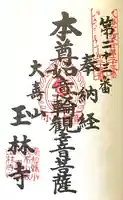 第二十三番
奉納経
本尊如意輪観世音菩薩
大壽山
玉林寺